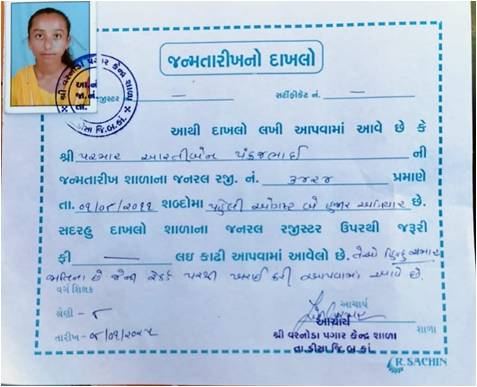 જન્મતારીખનો દાખલો
રજીસ્ટર — સર્ટીફીકેટ નં. —
આથી દાખલો લખી આપવામાં આવે છે કે
શ્રી પરમાર આરતીબેન પંકજભાઈ ની
જન્મતારીખ શાળાના જનરલ રજી. નં. ૩૪૨૪ પ્રમાણે
તા. ૦૧/૦૮/૨૦૧૧ શબ્દોમાં પહેલી ઓગસ્ટ બે હજાર અગિયાર છે.
સદરહુ દાખલો શાળાના જનરલ રજીસ્ટર ઉપરથી જરૂરી
ફી — લઇ કાઢી આપવામાં આવેલો છે. તેઓ હિન્દુ ચમાર
જાતિના છે જેની રેકર્ડ પરથી ખરાઈ કરી આપવામાં આવે છે.
વર્ગ શિક્ષક
શ્રેણી - ૮
તારીખ -
આચાર્ય
શાળા
આચાર્ય
શ્રી વરનોડા પગાર કેન્દ્ર શાળા
તા.ડીસા જિ.બ.કાં.
શ્રી વરનોડા પગાર કેન્દ્ર શાળા
તા. ડીસા જિ.બ.કાં.
R. SACHIN